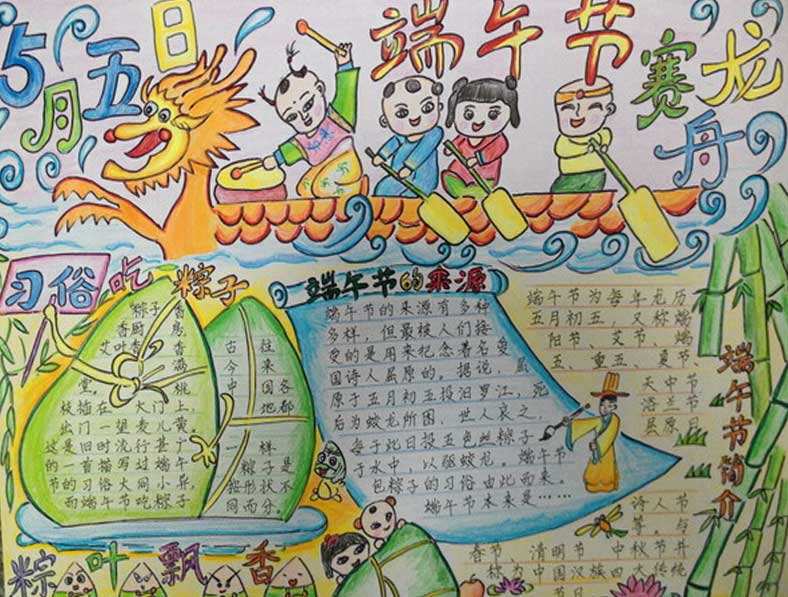 5月五日
端午节
赛龙舟
习俗吃粽子
粽子香
香厨房
艾叶香香
满
堂。桃
枝插在大门上,
出门一望麦儿黄。
这是旧时流行甚广
的一首描写过端午
节的习俗大同小异,
而端午节吃粽子
古往
今来
中国各
地都
一样
粽子是
按形状不
同而分。
端午节的来源
端午节的来源有多种
多样,但最被人们接
受的是用来纪念着名爱
国诗人屈原的。据说,屈
原于五月初五投汨罗江,死
后为蛟龙所困,世人哀之,
每于此日投五色丝粽子
于水中,以驱蛟龙。端午节
包粽子的习俗由此而来。
端午节本来是……
端午节为每年龙历
五月初五,又称端
阳节、艾节、端
五、重五、夏节、
天中节
浴兰节
屈原日
诗人节
等,与
春节 清明节 中秋节并
称为中国汉族四大传统
节日
端午节简介
粽叶飘香